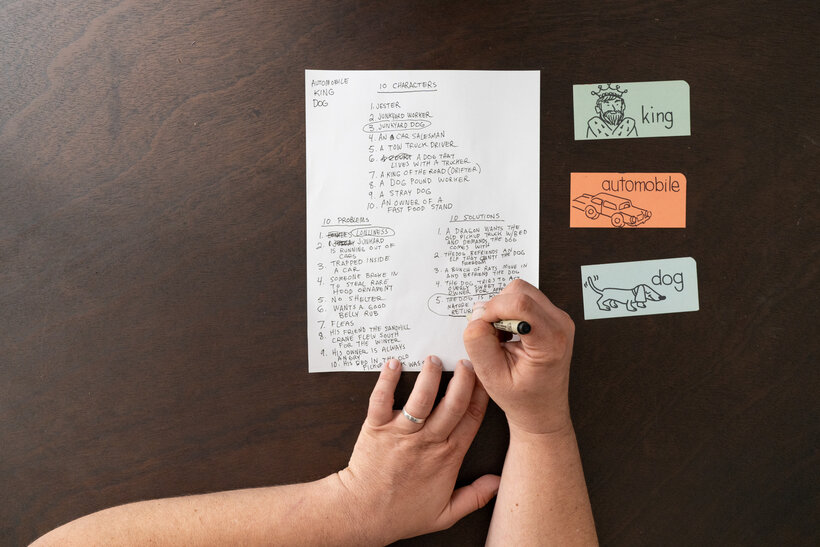 AUTOMOBILE
KING
DOG
10 CHARACTERS
1. JESTER
2. JUNKYARD WORKER
3. JUNKYARD DOG
4. A CAR SALESMAN
5. A TOW TRUCK DRIVER
6. A DOG THAT
LIVES WITH A TRUCKER
7. A KING OF THE ROAD (DRIFTER)
8. A DOG POUND WORKER
9. A STRAY DOG
10. AN OWNER OF A
FAST FOOD STAND
10 PROBLEMS
1. LONLINESS
2 JUNKYARD
IS RUNNING OUT OF
CARS
3 TRAPPED INSIDE
A CAR
4 SOMEONE BROKE IN
TO STEAL RARE
HOOD ORNAMENT
5 NO SHELTER
6 WANTS A GOOD
BELLY RUB
7 FLEAS
8 HIS FRIEND THE SANDHILL
CRANE FLEW SOUTH
FOR THE WINTER
9. HIS OWNER IS ALWAYS
ANGRY
10. HIS BED IN THE OLD
PICKUP WAS
10 SOLUTIONS
1. A DRAGON WANTS THE
OLD PICKUP TRUCK W/BED
AND DEMANDS THE DOG
COMES WITH
2 THE DOG BEFRIENDS AN
ELF THAT THE DOG
3 A BUNCH OF RATS MOVE IN
AND BEFRIEND THE DOG
4 THE DOG TRIES TO
OVERLY SWEET TO
OWNER FOR
5 THE DOG IS
NATURE
RETURN
king
automobile
dog